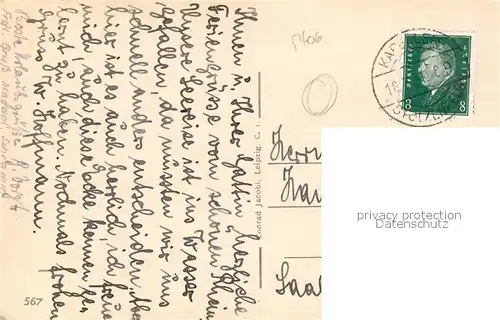 Ihnen u. Ihrer Gattin herzliche
Feriengrüsse vom schönen Rhein.
Unsere Seereise ist ins Wasser
gefallen, da mussten wir uns
schnell anders entscheiden. Aber
hier ist es auch herrlich, ich freue
mich, auch diese Ecke kennen ge-
lernt zu haben. Nochmals frohen
Gruss W. Hoffmann.
567
Conrad Jacobi, Leipzig, C. 1
5406
Deutsches Reich
8 8
Herrn
Saal
privacy protection
Datenschutz